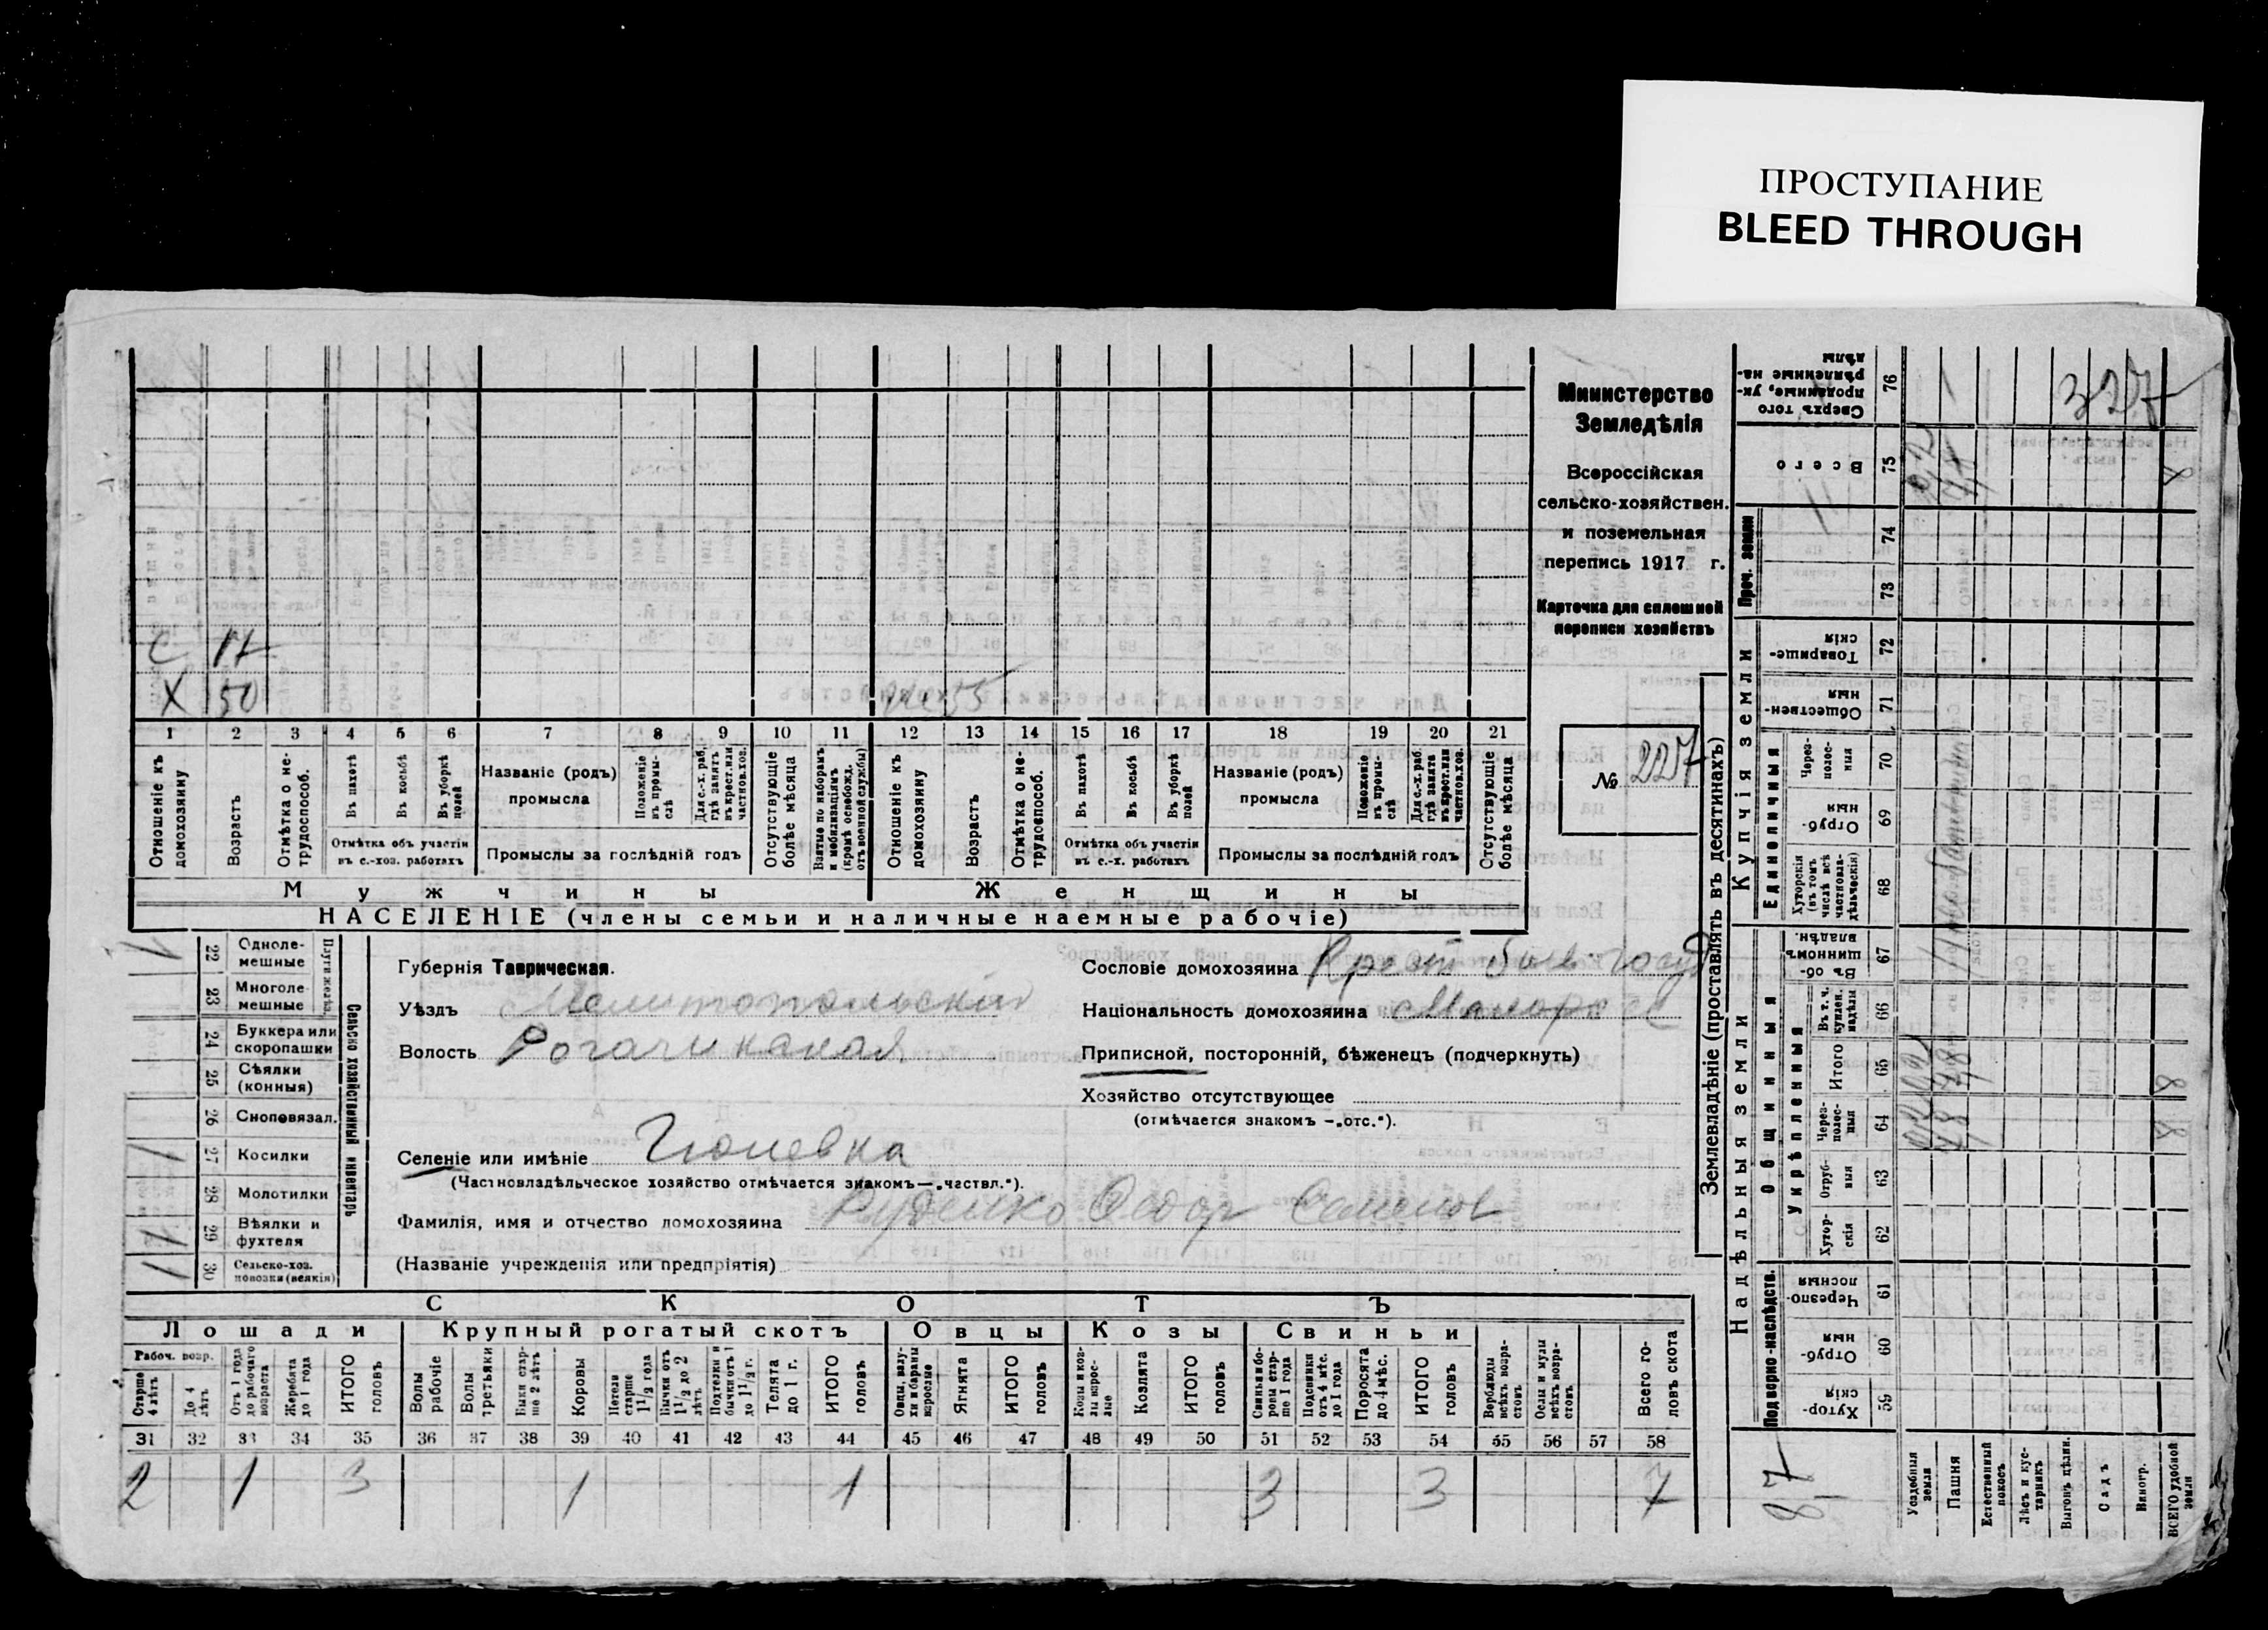 ПРОСТУПАНИЕ
BLEED THROUGH
С 17
Х 50
жена 55
1 2 3 4 5 6 7 8 9 10 11 12 13 14 15 16 17 18 19 20 21
Отношеніе къ домохозяину
Возрастъ
Отмѣтка о нетрудоспособ.
Въ пахотѣ
Въ косьбѣ
Въ уборкѣ полей
Отмѣтка объ участіи въ с.-хоз. работахъ
Названіе (родъ) промысла
Положеніе въ промыслѣ
Для с.-х. раб. гдѣ занятъ въ крест. или частновл. хоз.
Промыслы за послѣдній годъ
Отсутствующіе болѣе мѣсяца
Взятые по наборамъ и мобилизаціямъ (кромѣ освобожд. отъ военной службы)
Отношеніе къ домохозяину
Возрастъ
Отмѣтка о нетрудоспособ.
Въ пахотѣ
Въ косьбѣ
Въ уборкѣ полей
Отмѣтка объ участіи въ с.-х. работахъ
Названіе (родъ) промысла
Положеніе въ промыслѣ
Для с.-х. раб. гдѣ занята въ крест. или частновл. хоз.
Промыслы за послѣдній годъ
Отсутствующіе болѣе мѣсяца
Мужчины
Женщины
НАСЕЛЕНІЕ (члены семьи и наличные наемные рабочіе)
Министерство
Земледѣлія
Всероссійская
сельско-хозяйствен.
и поземельная
перепись 1917 г.
Карточка для сплошной
переписи хозяйствъ
№ 227
Сельско хозяйственный инвентарь
1 22 Однолемешные
23 Многолемешные
24 Буккера или скоропашки
25 Сѣялки (конныя)
26 Сноповязал.
1 27 Косилки
28 Молотилки
1 29 Вѣялки и фухтеля
1 30 Сельско-хоз. повозки (всякія)
Губернія Таврическая.
Уѣздъ Мелитопольскій
Волость Рогачикская
Селеніе или имѣніе Гюневка
(Частновладѣльческое хозяйство отмѣчается знакомъ—„чествл.“).
Фамилія, имя и отчество домохозяина Руденко Федор Семенов
(Названіе учрежденія или предпріятія)
Сословіе домохозяина Крест быв. госуд
Національность домохозяина Малорос
Приписной, посторонній, бѣженецъ (подчеркнуть)
Хозяйство отсутствующее
(отмѣчается знакомъ —„отс.“).
СКОТЪ
Лошади Крупный рогатый скотъ Овцы Козы Свиньи
Рабоч. возр.
Старше 4 лѣтъ
До 4 лѣтъ
Отъ 1 года до рабочаго возраста
Жеребята до 1 года
ИТОГО головъ
Волы рабочіе
Волы третьяки
Быки старше 2 лѣтъ
Коровы
Нетели старше 1 1/2 года
Бычки отъ 1 1/2 до 2 лѣтъ
Подтелки и бычки отъ 1 до 1 1/2 г.
Телята до 1 г.
ИТОГО головъ
Овцы, валухи и бараны взрослые
Ягнята
ИТОГО головъ
Козы и козлы взрослые
Козлята
ИТОГО головъ
Свиньи и боровы старше 1 года
Подсвинки отъ 4 мѣс. до 1 года
Поросята до 4 мѣс.
ИТОГО головъ
Верблюды всѣхъ возрастовъ
Ослы и мулы всѣхъ возрастовъ
Всего головъ скота
31 32 33 34 35 36 37 38 39 40 41 42 43 44 45 46 47 48 49 50 51 52 53 54 55 56 57 58
2 1 3 1 1 3 3 7
Землевладѣніе (проставлять въ десятинахъ)
Надѣльныя земли
Купчія земли
Подворно-наслѣдств.
Общинныя
Укрѣпленныя
Единоличныя
Проч. земли
Хуторскія 59
Отрубныя 60
Черезполосныя 61
Хуторскія 62
Отрубныя 63
Черезполосныя 64
Итого 65
Въ т. ч. куплен. надѣлы 66
Въ общинномъ владѣн. 67
Хуторскія (въ томъ числѣ всѣ частновладѣльческія) 68
Отрубныя 69
Черезполосныя 70
Общественныя 71
Товарищескія 72
73
74
Всего 75
Сверхъ того проданные, укрѣпленные надѣлы 76
327
87
Усадебныя земли
Пашня
Естественный покосъ
Лѣсъ и кустарникъ
Выгонъ цѣлин.
Садъ
Виногр.
ВСЕГО удобной земли
0,2
7,8
8